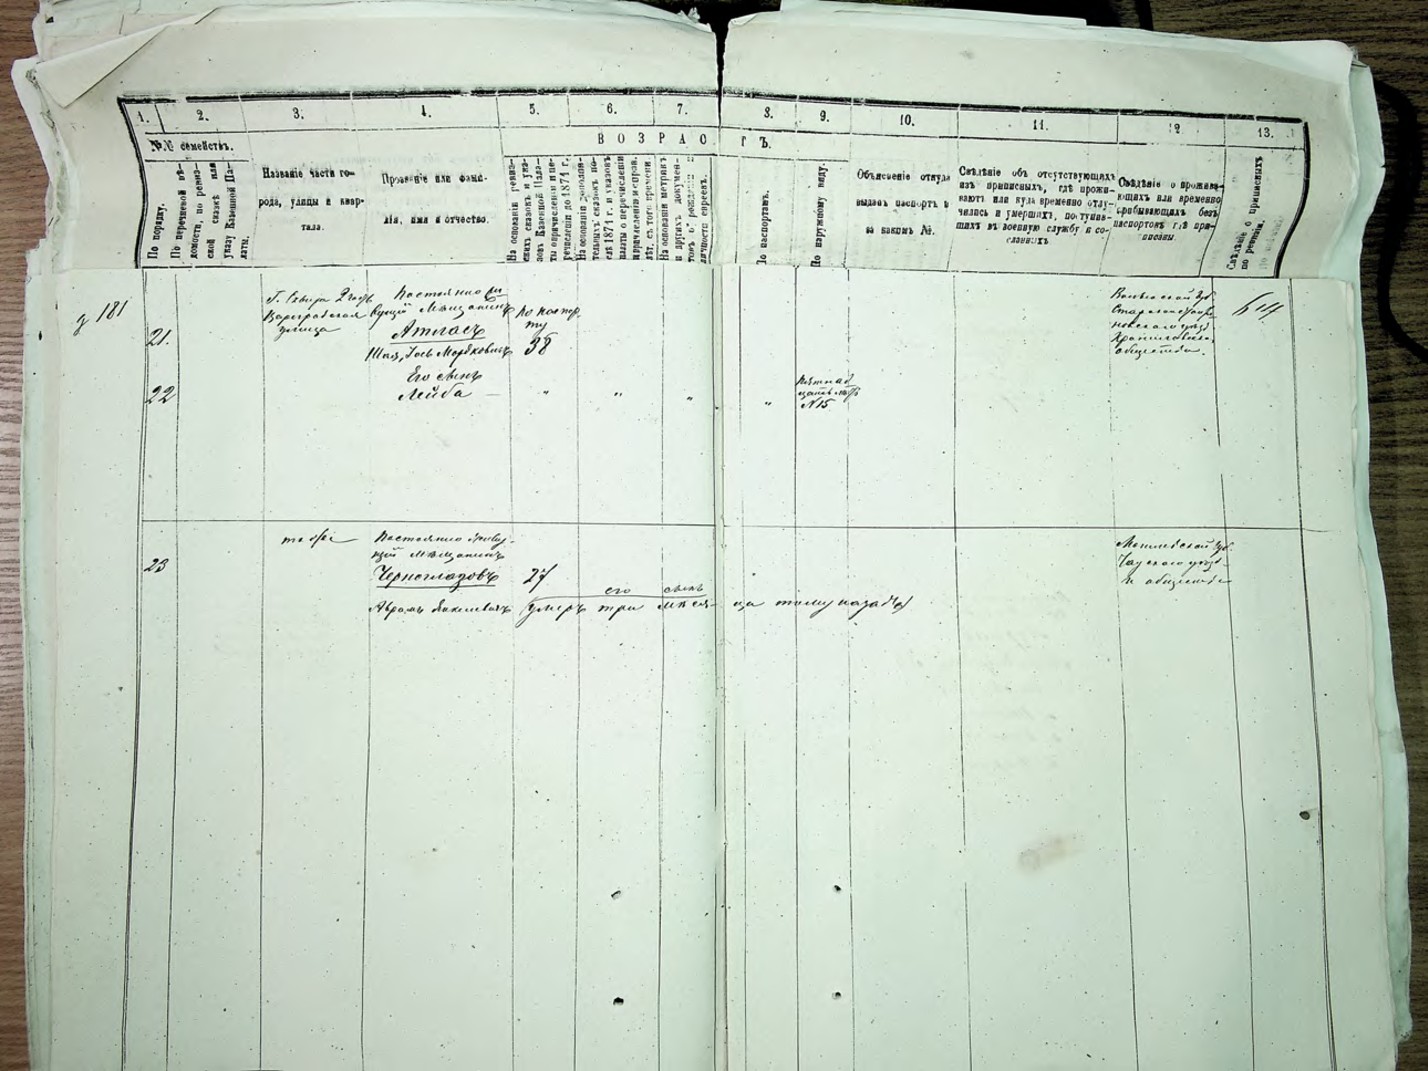 1. 2. 3. 4. 5. 6. 7. 8. 9. 10. 11. 12 13.
№№ семействъ.
ВОЗРАСТЪ.
По порядку.
По перечневой вѣ-
домости, по ревиз-
ской сказкѣ или
указу Казенной Па-
латы.
Названіе части го-
рода, улицы и квар-
тала.
Прозваніе или фами-
лія, имя и отчество.
На основаніи ревиз-
скихъ сказокъ и ука-
зовъ Казенной Пала-
ты о причисленіи и пе-
речисленіи до 1874 г.
На основаніи дополни-
тельныхъ сказокъ по-
слѣ 1874 г. и указовъ
палаты о перечисленіи
и причисленіи и справ.
лѣт. съ того времени.
На основаніи метрик
и другихъ докумен-
товъ о рожденіи и
личности евреевъ.
По паспортамъ.
По наружному виду.
Объясненіе откуда
выданъ паспортъ и
за какимъ №.
Свѣдѣніе объ отсутствующихъ
изъ приписныхъ, гдѣ прожи-
ваютъ или куда временно отлу-
чились и умершихъ, поступив-
шихъ въ военную службу и со-
сланныхъ
Свѣдѣніе о прожива-
ющихъ или временно
прибывающихъ безъ
паспортовъ гдѣ при-
писаны.
Свѣдѣніе о приписныхъ
по ревизіи.
д 181
21.
Г. Сквира 2 часть
улица
Постоянно жи-
вущій Мѣщанинъ
Атласъ
Шая, Іось Мордковичъ
по паспор-
ту
38
Волынской Губ.
Староконстанти-
новскаго уѣзда
общества.
614
22
Его сынъ
Лейба — " " " "
Пятнад
цать лѣтъ
№15
23
тоже
Постоянно живу-
щій Мѣщанинъ
Черноглазовъ
27
Абрамъ
его сынъ
умеръ три мѣся-
ца тому назадъ
Могилевской Губ.
Чаускаго уѣзда
и общества